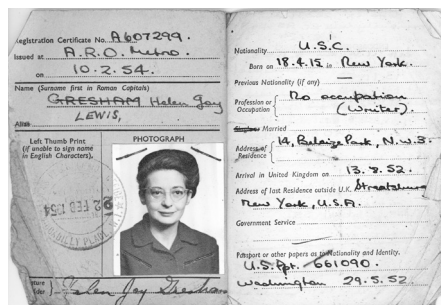 Registration Certificate No. A607299.
Issued at A.R.O. Metro.
on 10.2.54.
Name (Surname first in Roman Capitals)
GRESHAM Helen Joy
LEWIS,
Alias
Left Thumb Print
(if unable to sign name
in English Characters).
PHOTOGRAPH
2 FEB 1954
PICCADILLY PLACE
Helen Joy Gresham
Nationality U.S.C.
Born on 18.4.15 in New York.
Previous Nationality (if any)
Profession or
Occupation
No occupation
(Writer).
Single Married
Address of
Residence
14, Belsize Park, N.W.3.
Arrival in United Kingdom on 13.8.52.
Address of last Residence outside U.K. Staatsburg
New York, U.S.A.
Government Service
Passport or other papers as to Nationality and Identity.
U.S. Ppt. 661090.
Washington 29.5.52.